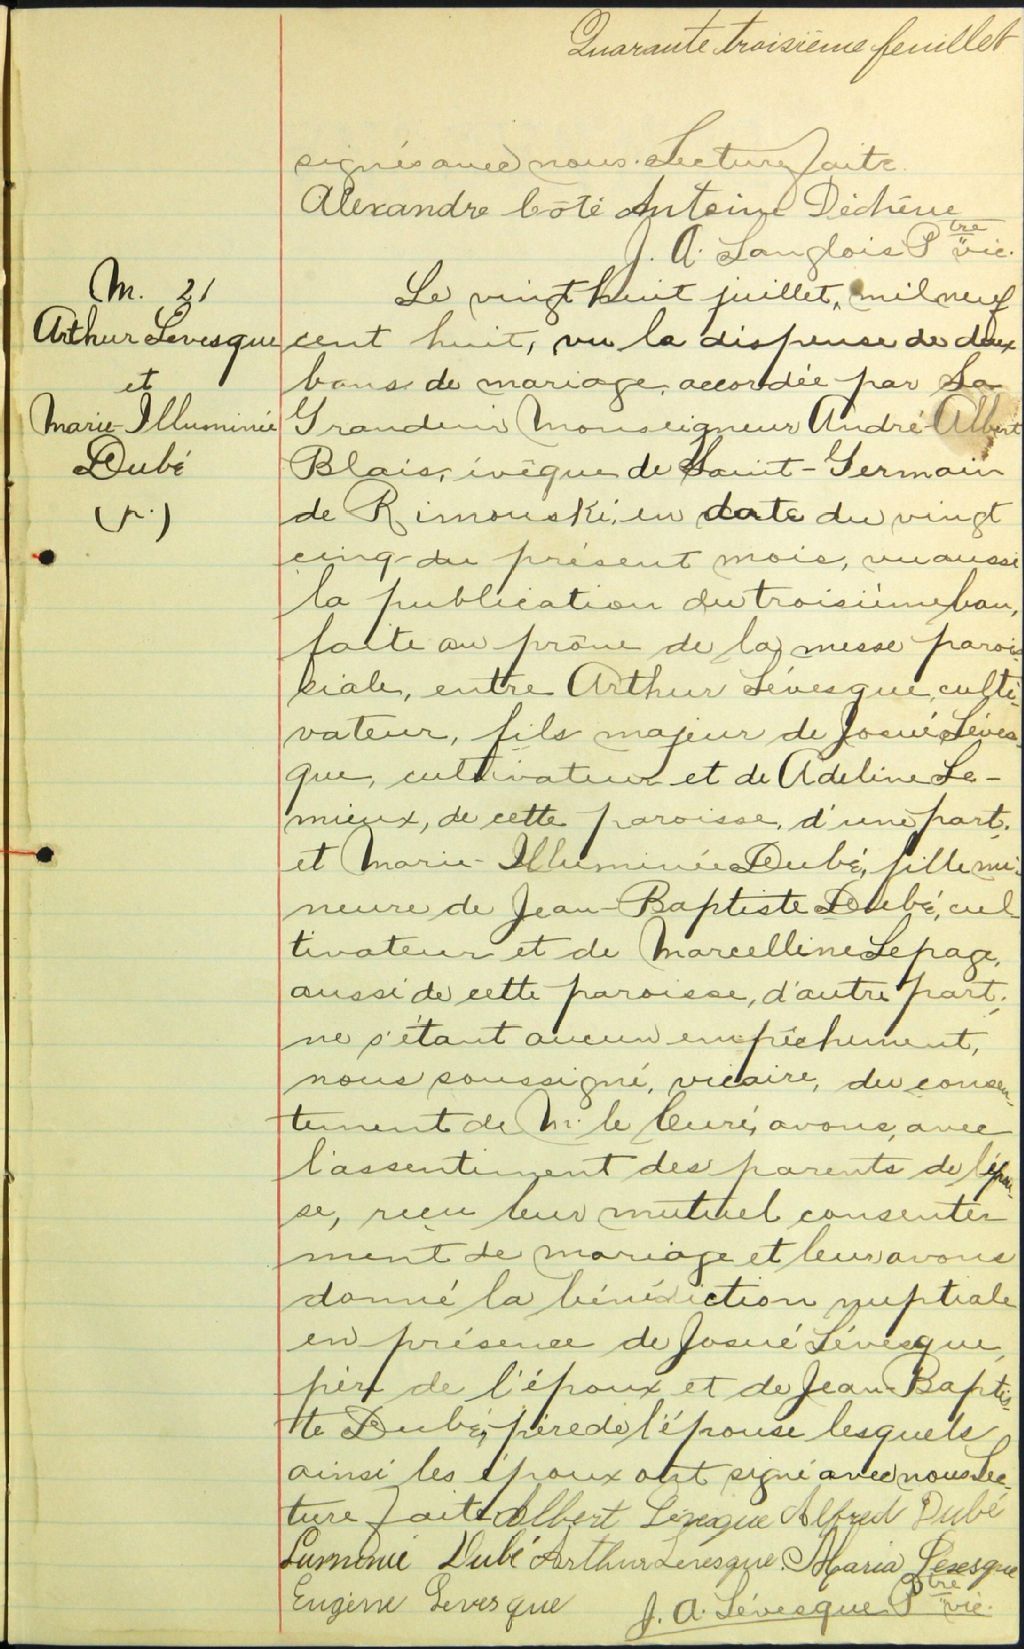 Quarante troisième feuillet
signés avec nous. Lecture faite.
Alexandre Côté Antoine Déchêne
J. A. Langlois Ptre vic.
M. 21
Arthur Levesque
et
Marie-Illuminée
Dubé
(p.)
Le vingt huit juillet, mil neuf
cent huit, vu la dispense de deux
bans de mariage, accordée par Sa
Grandeur Monseigneur André-Albert
Blais, évêque de Saint-Germain
de Rimouski, en date du vingt
cinq du présent mois, vu aussi
la publication du troisième ban,
faite au prône de la messe parois-
siale, entre Arthur Lévesque, culti-
vateur, fils majeur de Josué Léves-
que, cultivateur et de Adeline Le-
mieux, de cette paroisse, d'une part;
et Marie-Illuminée Dubé, fille mi-
neure de Jean-Baptiste Dubé, cul-
tivateur et de Marcelline Lepage,
aussi de cette paroisse, d'autre part;
ne s'étant aucun empêchement,
nous soussigné, vicaire, du consen-
tement de M. le Curé, avons, avec
l'assentiment des parents de l'épou-
se, reçu leur mutuel consente-
ment de mariage et leur avons
donné la bénédiction nuptiale
en présence de Josué Lévesque,
père de l'époux et de Jean-Baptis-
te Dubé, père de l'épouse lesquels
ainsi les époux ont signé avec nous. Lec-
ture faite Albert Lévesque Alfred Dubé
Dubé Arthur Levesque. Maria Levesque
Eugène Levesque J. A. Lévesque Ptre vic.